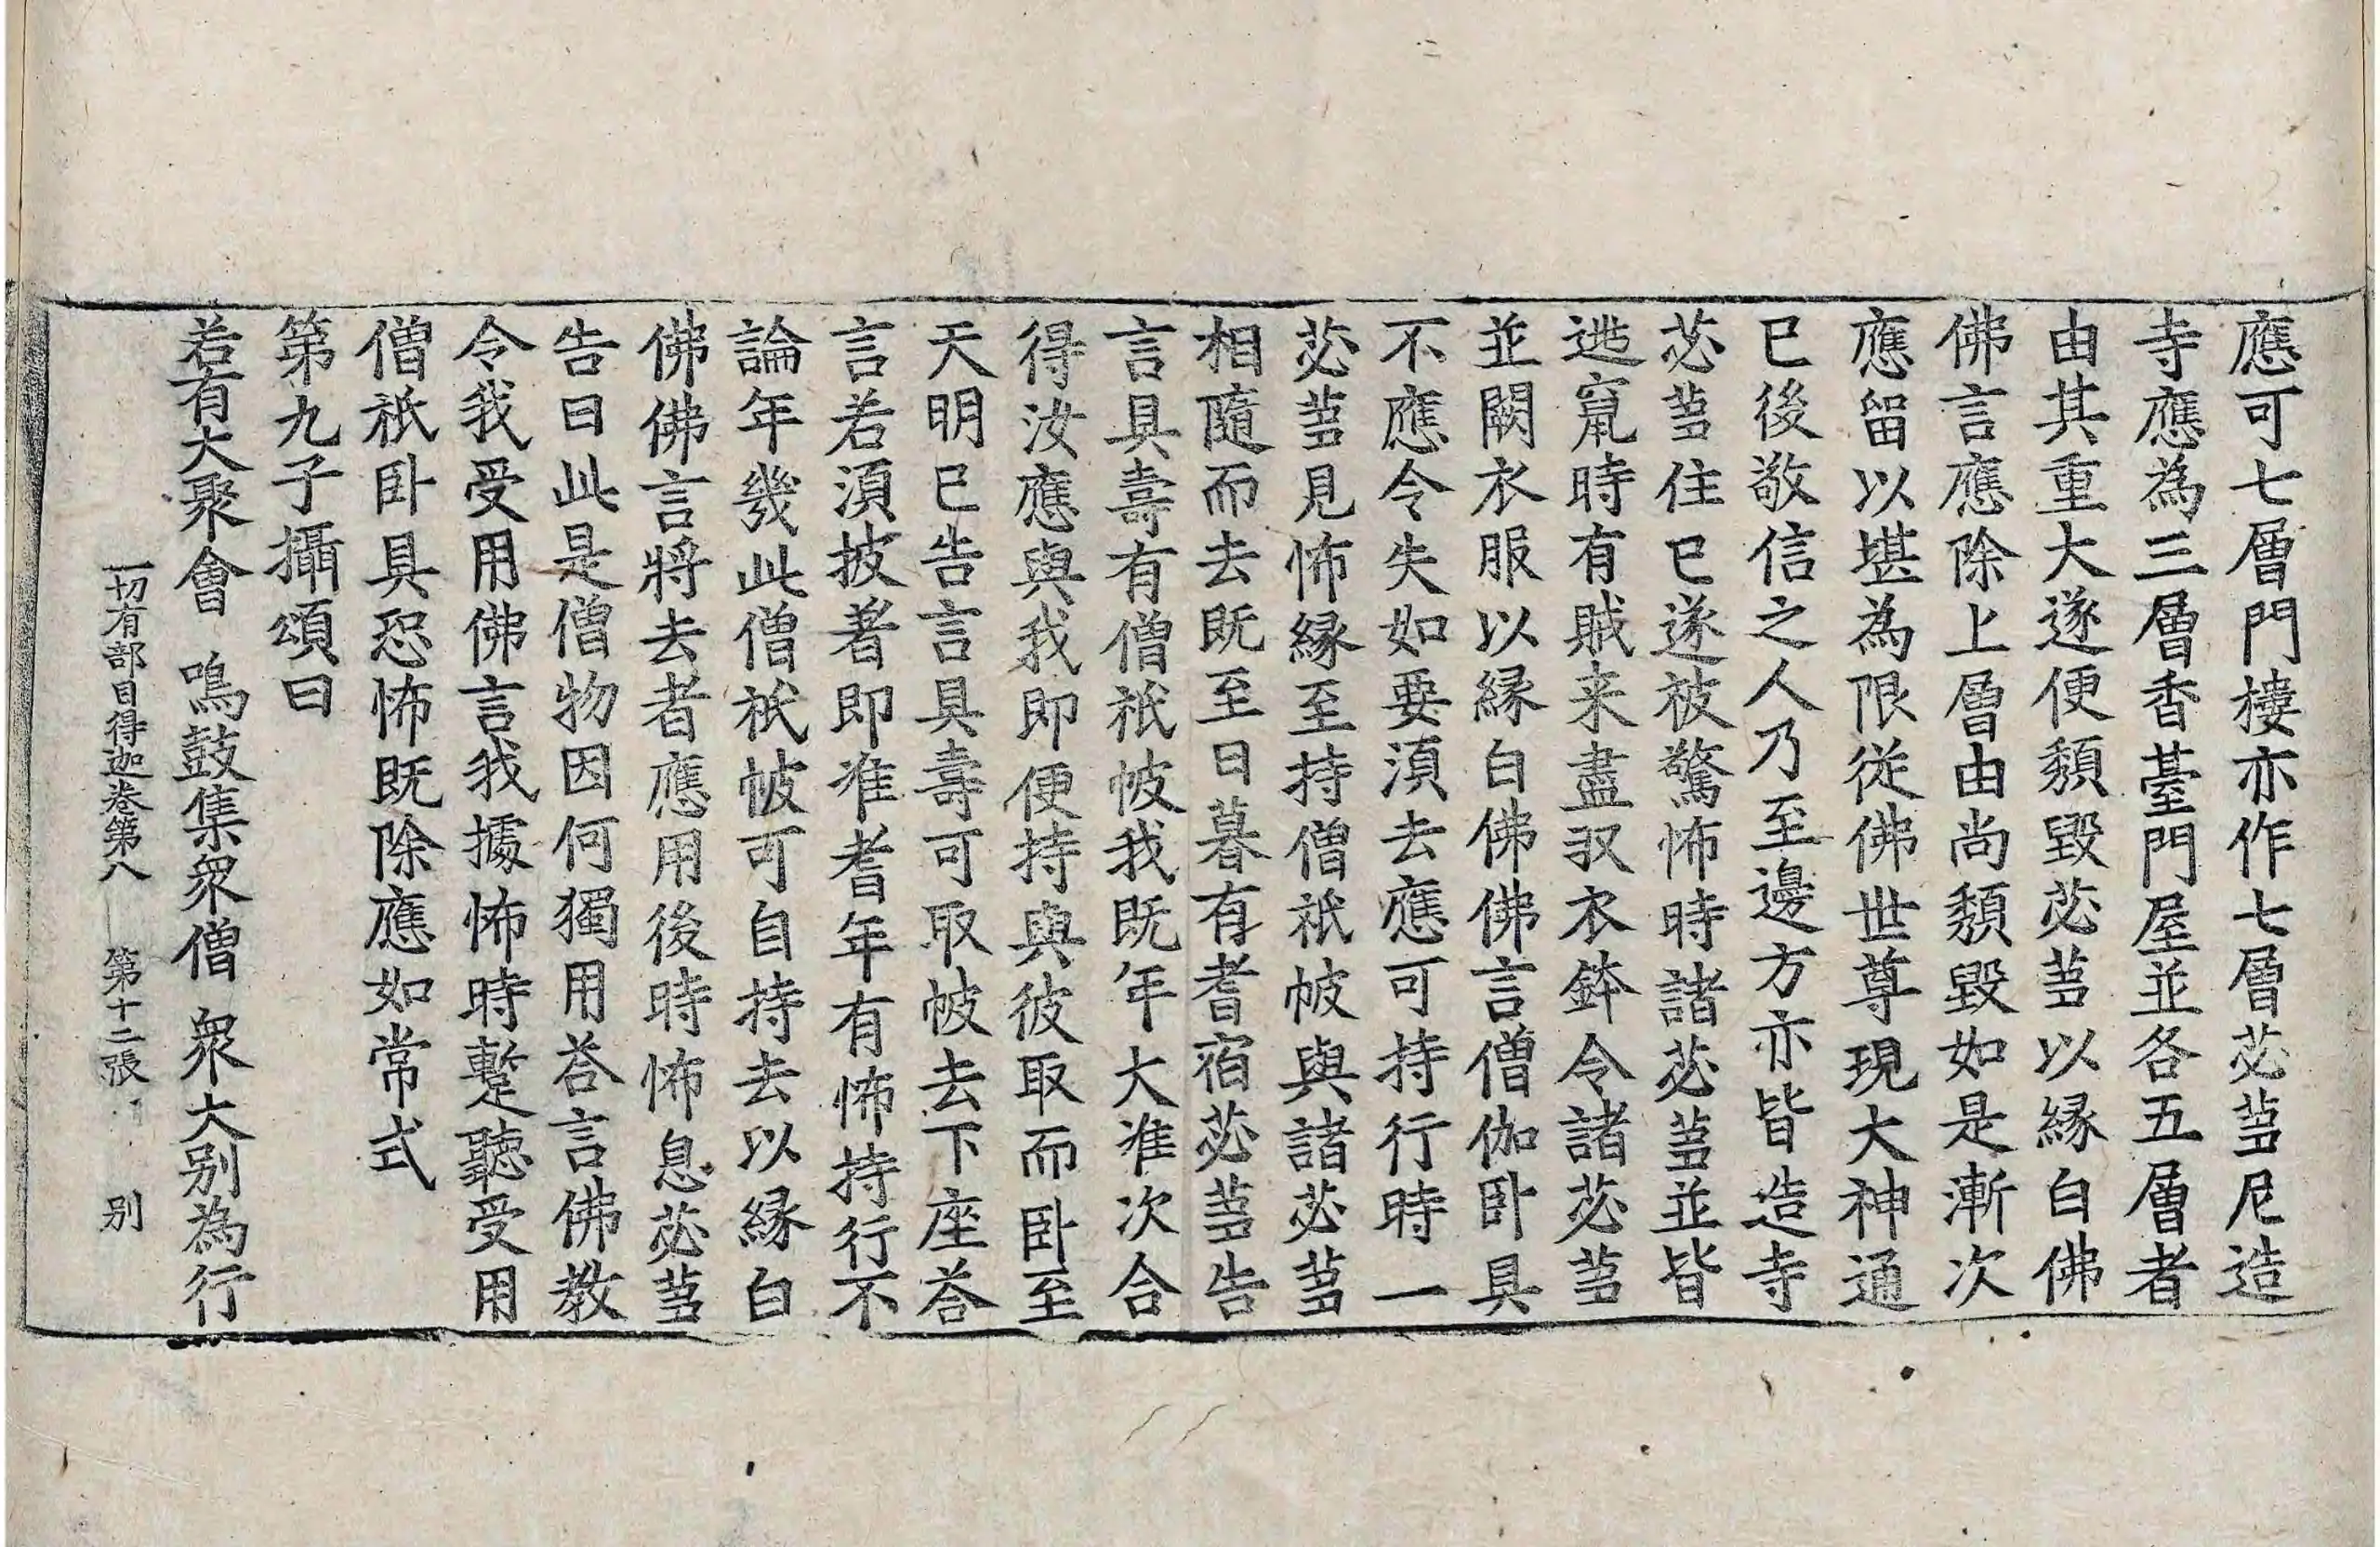 應可七層門樓亦作七層苾芻尼造
寺應為三層香臺門屋並各五層者
由其重大遂便頹毀苾芻以緣白佛
佛言應除上層由尚頹毀如是漸次
應留以堪為限從佛世尊現大神通
已後敬信之人乃至邊方亦皆造寺
苾芻住已遂被驚怖時諸苾芻並皆
逃竄時有賊来盡収衣鉢令諸苾芻
並闕衣服以緣白佛佛言僧伽卧具
不應令失如要湏去應可持行時一
苾芻見怖緣至持僧祇帔與諸苾芻
相隨而去既至日暮有耆宿苾芻告
言具壽有僧祇帔我既年大准次合
得汝應與我即便持與彼取而卧至
天明已告言具壽可取帔去下座荅
言若湏披著即准耆年有怖持行不
論年幾此僧祇帔可自持去以緣白
佛佛言將去者應用後時怖息苾芻
告曰此是僧物因何獨用荅言佛教
令我受用佛言我據怖時蹔聽受用
僧祇卧具恐怖既除應如常式
第九子攝頌曰
若有大聚會　鳴鼓集衆僧　衆大別為行
一切有部目得迦卷第八　第十二張　别